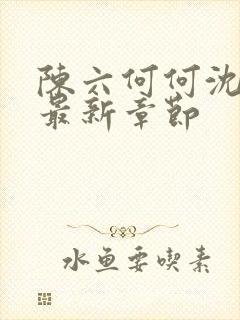 陳六何何沈
最新章節
水鱼要喫素